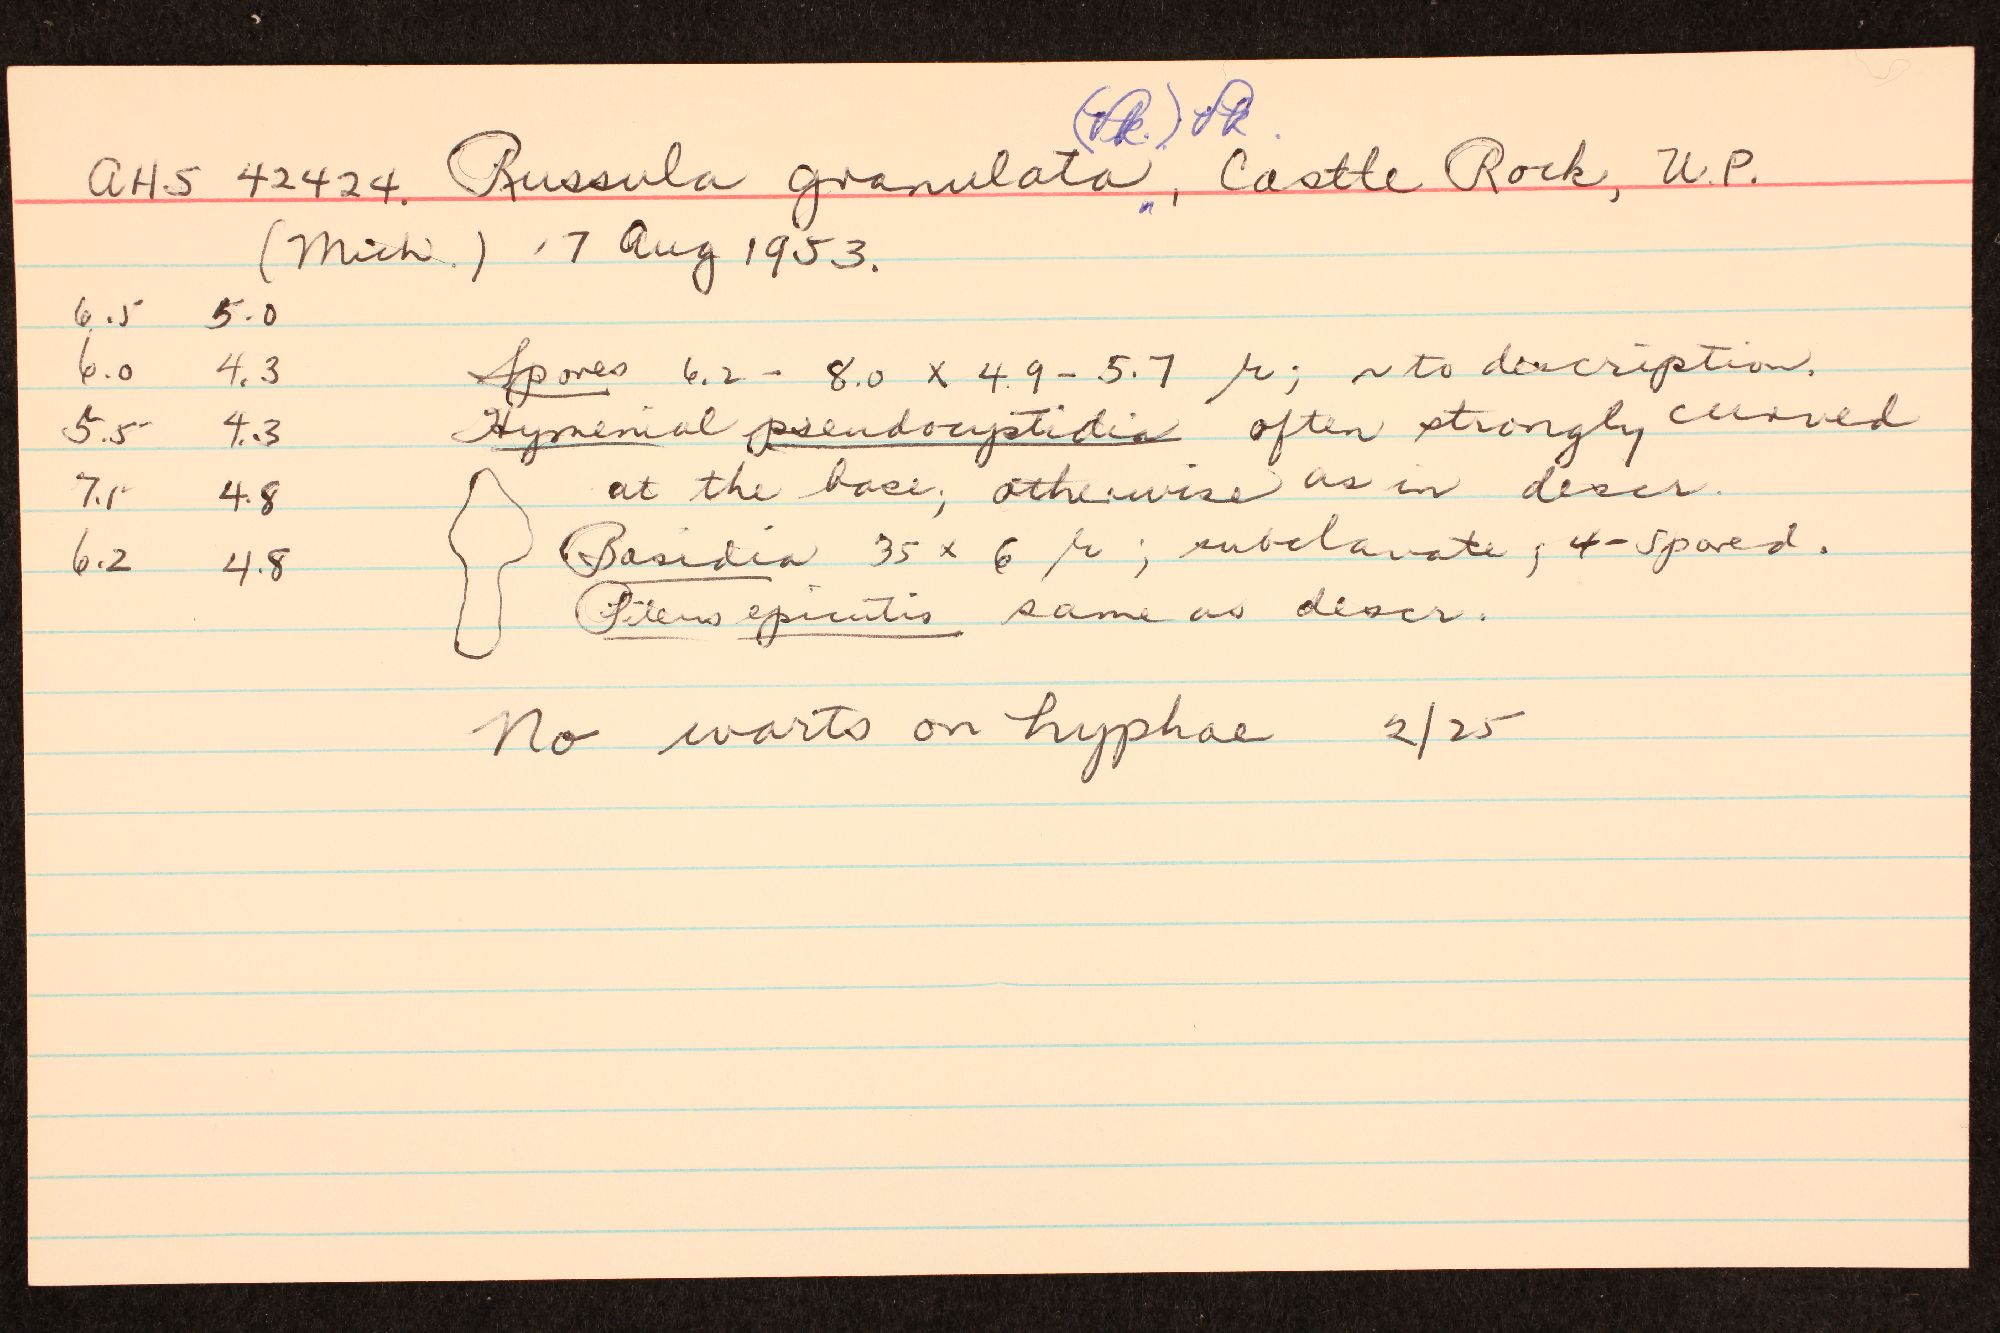 (Pk.) Pk.
AHS 42424. Russula granulata, Castle Rock, U.P.
(Mich.) 17 Aug 1953.
6.5 5.0
6.0 4.3 Spores 6.2 - 8.0 x 4.9 - 5.7 μ; ~ to description.
5.5 4.3 Hymenial pseudocystidia often strongly curved
7.1 4.8 at the base; otherwise as in descr.
6.2 4.8 Basidia 35 x 6 μ; subclavate; 4-spored.
Pileus epicutis same as descr.
No warts on hyphae 2/25